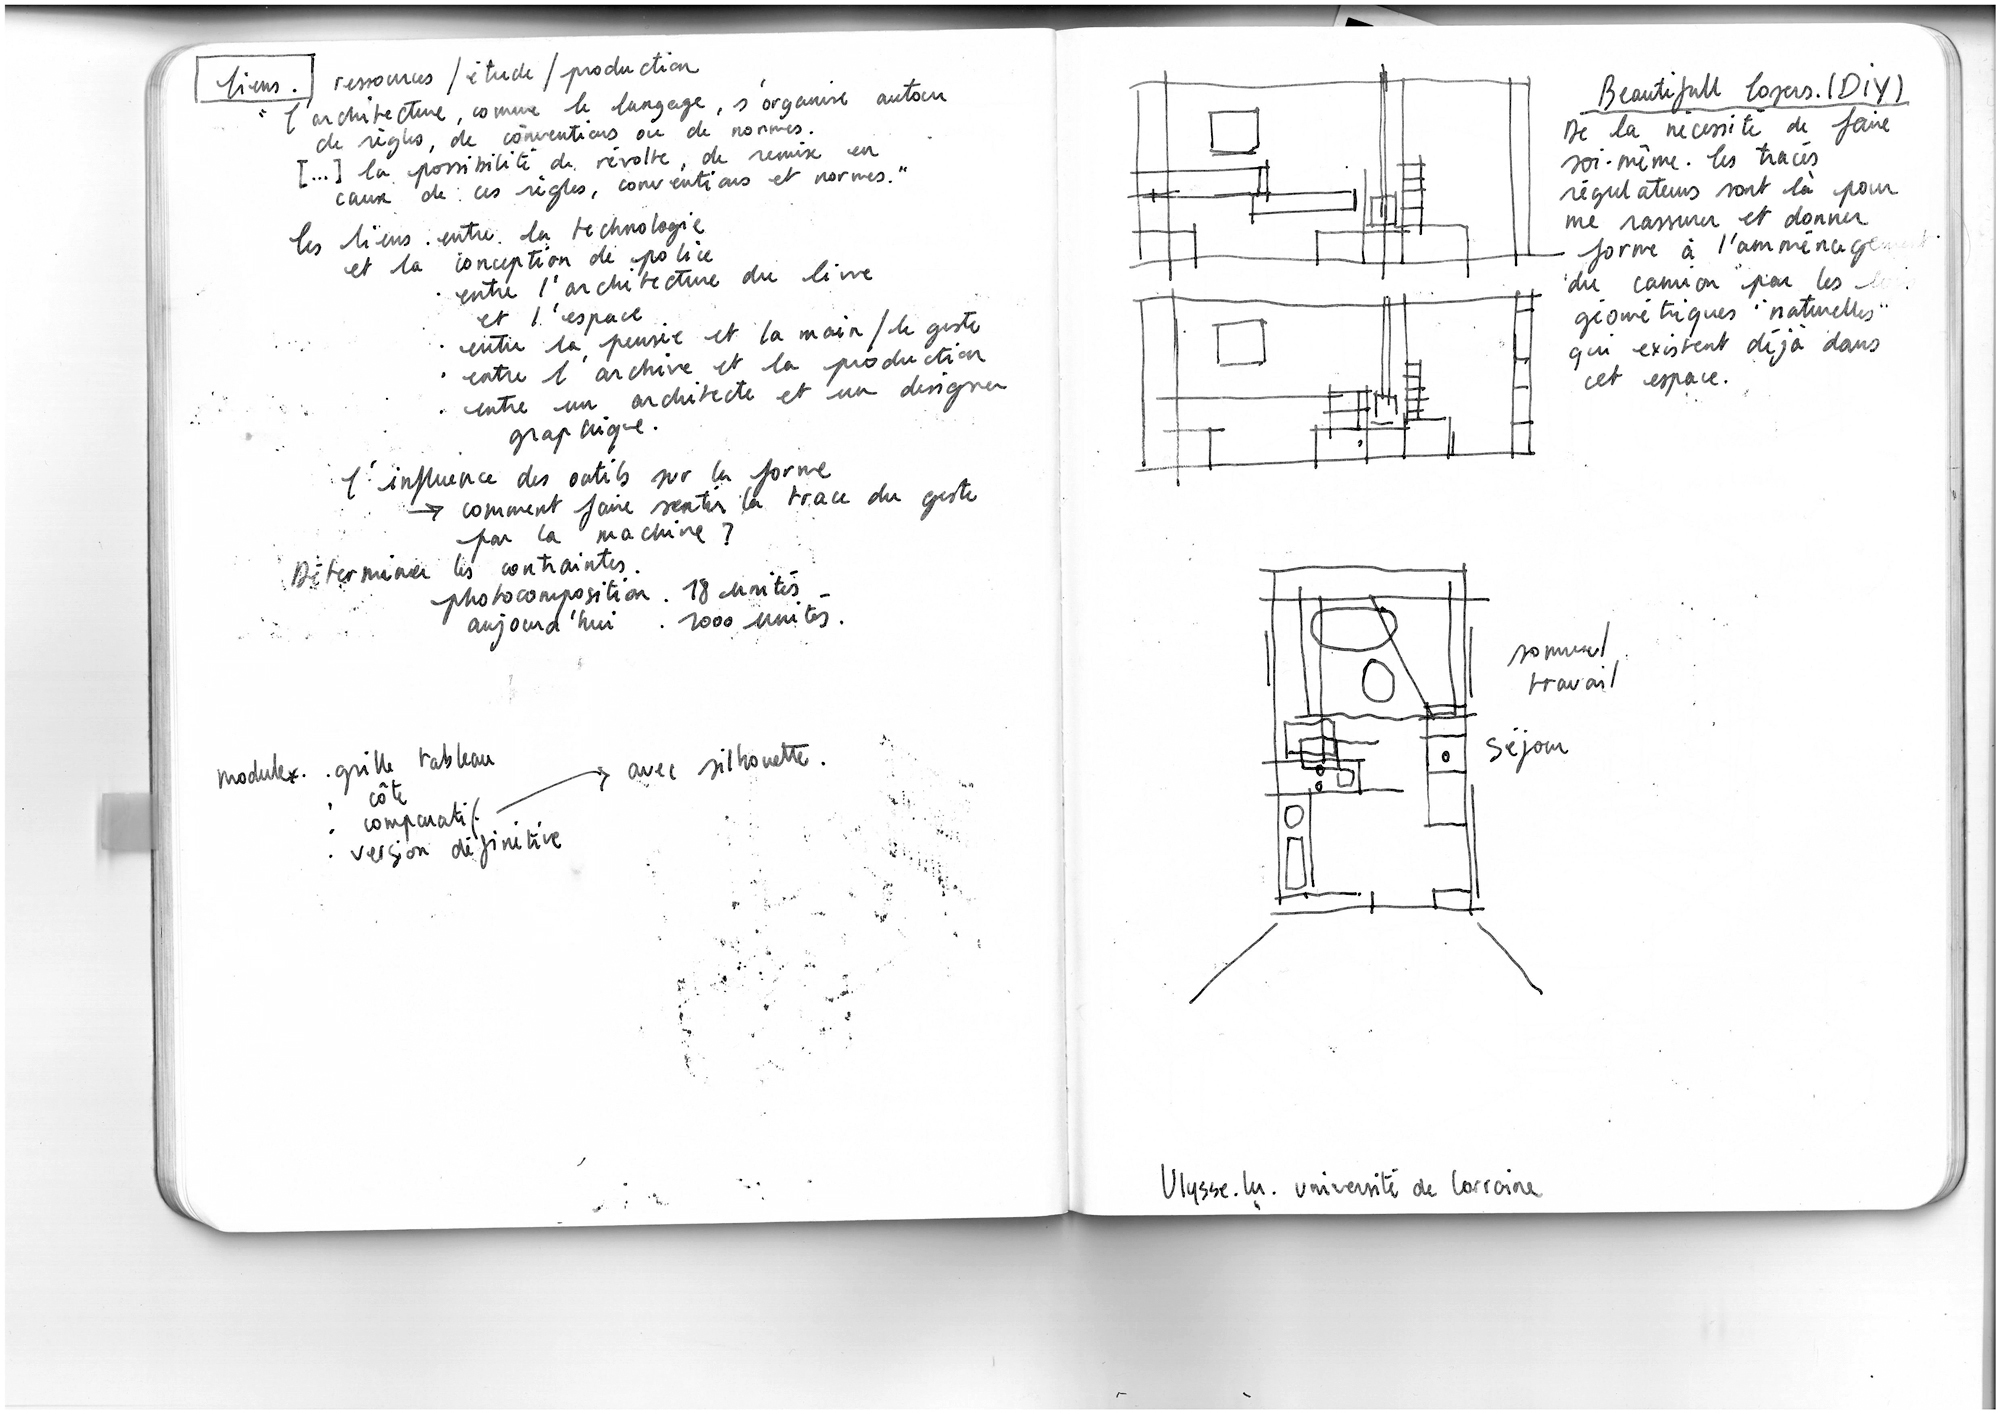 liens. ressources / étude / production
"l'architecture, comme le langage, s'organise autour
de règles, de conventions ou de normes.
[...] la possibilité de révolte, de remise en
cause de ces règles, conventions et normes."
les liens. entre la technologie
et la conception de police
. entre l'architecture du livre
et l'espace
. entre la pensée et la main / le geste
. entre l'archive et la production
. entre un architecte et un designer
graphique.
l'influence des outils sur la forme
→ comment faire sentir la trace du geste
par la machine ?
Déterminer les contraintes.
photocomposition. 18 unités
aujourd'hui . 1000 unités.
module*. . grille tableau
. côte
. comparatif → avec silhouette.
. version définitive
Beautifull losers. (DiY)
De la nécessité de faire
soi-même. les tracés
régulateurs sont là pour
me rassurer et donner
forme à l'amménagement
du camion par les
géométriques "naturelles"
qui existent déjà dans
cet espace.
sommeil
travail
séjour
Ulysse.lu. université de lorraine